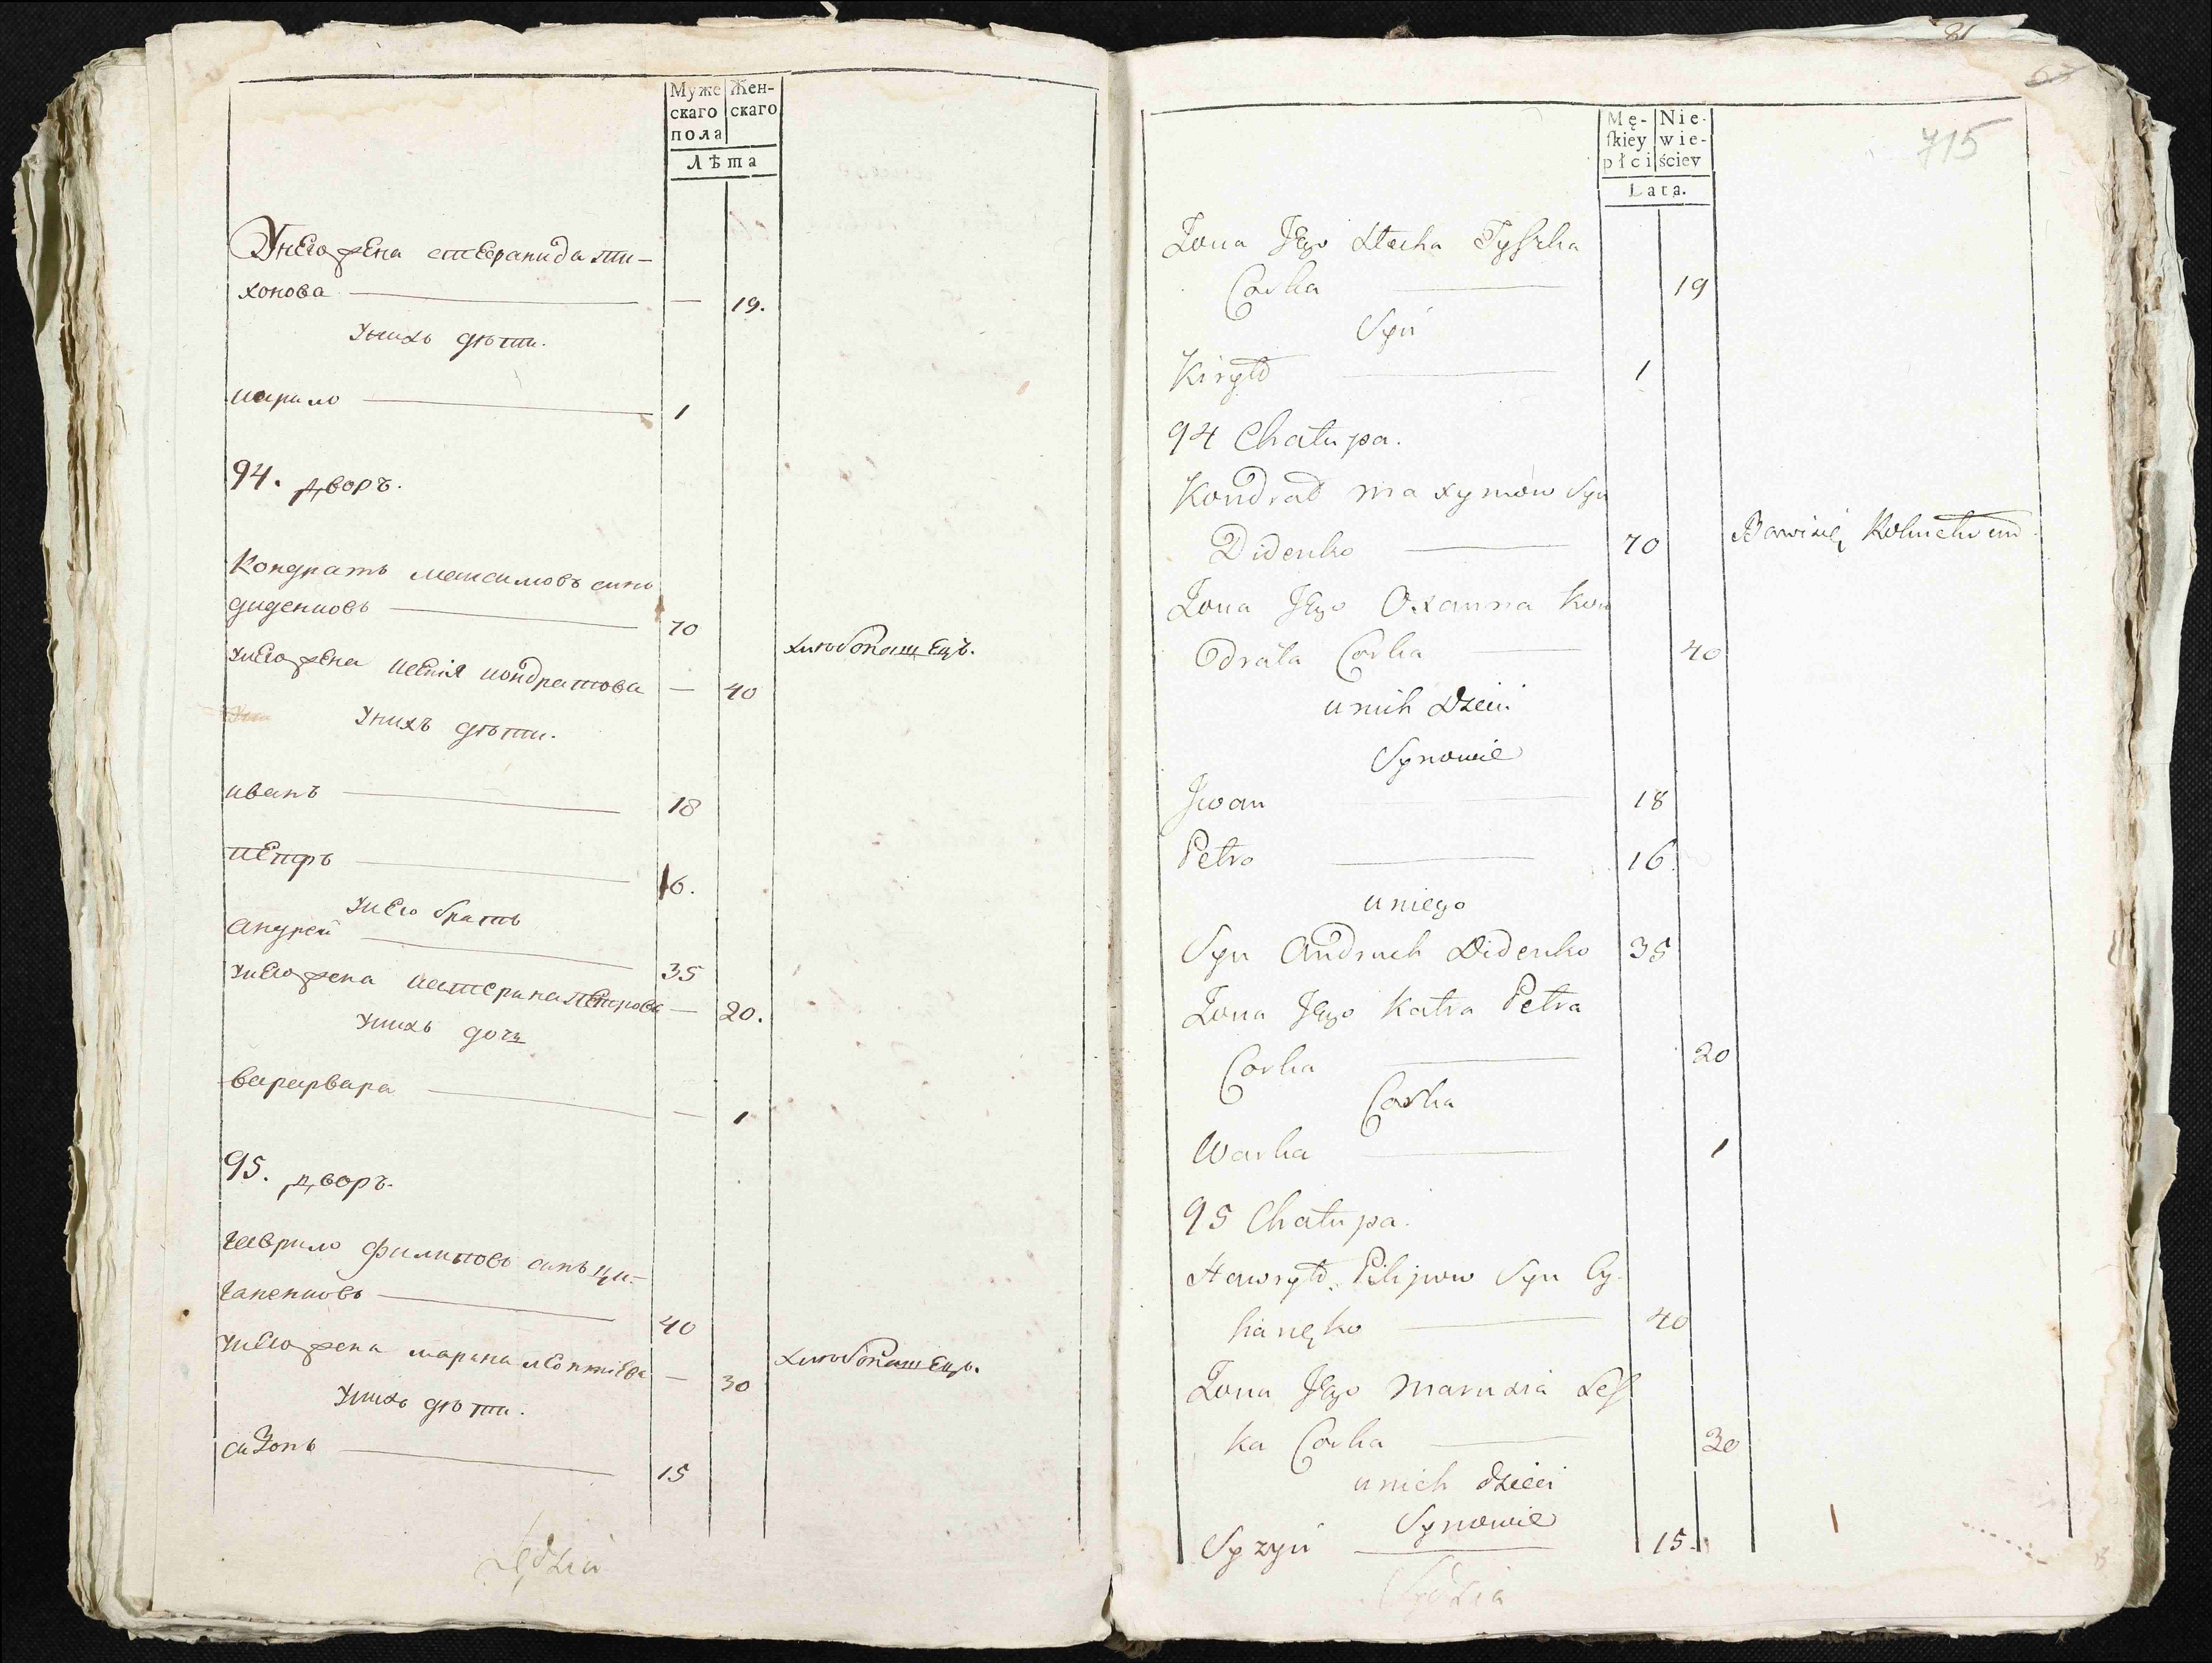 Муже
скаго
пола
Жен-
скаго
Лѣта
У него жена степанида ти-
хонова — — 19.
У нихъ дѣти.
кирило — 1
94. дворъ.
Кондратъ максимовъ синъ
диденковъ — 70
хлѣбопашецъ.
У него жена ксенія кондратова — 40
У нихъ дѣти.
иванъ — 18
петръ — 16.
У него братъ
андрей — 35
У него жена катерина петрова — 20.
У нихъ дочь
варарвара — — 1
95. дворъ.
гаврило филиповъ синъ ци-
ганенковъ — 40
хлѣбопашецъ.
У него жена марина леонтіева — 30
У нихъ дѣти.
сизонъ — 15
Sędzia
81
715
Mę-
skiey
płci
Nie-
wie-
ściey
Lata.
Żona Jego Stecha Tyszka
Corka — 19
Syn
Kiryło — 1
94 Chałupa.
Kondrat maxymow Syn
Didenko — 70
Bawi się Rolnictwem
Żona Jego Oxanna Kon
drata Corka — 40
u nich Dzieci
Synowie
Jwan — 18
Petro — 16.
u niego
Syn Andruch Didenko 35
Żona Jego Katra Petra
Corka — 20
Corka
Warka — 1
95 Chałupa.
Hawryło Pilipow Syn Cy-
hanęko — 40
Żona Jego Marusia Les
ka Corka — 30
u nich dzieci
Synowie
Syzyn — 15.
Sędzia